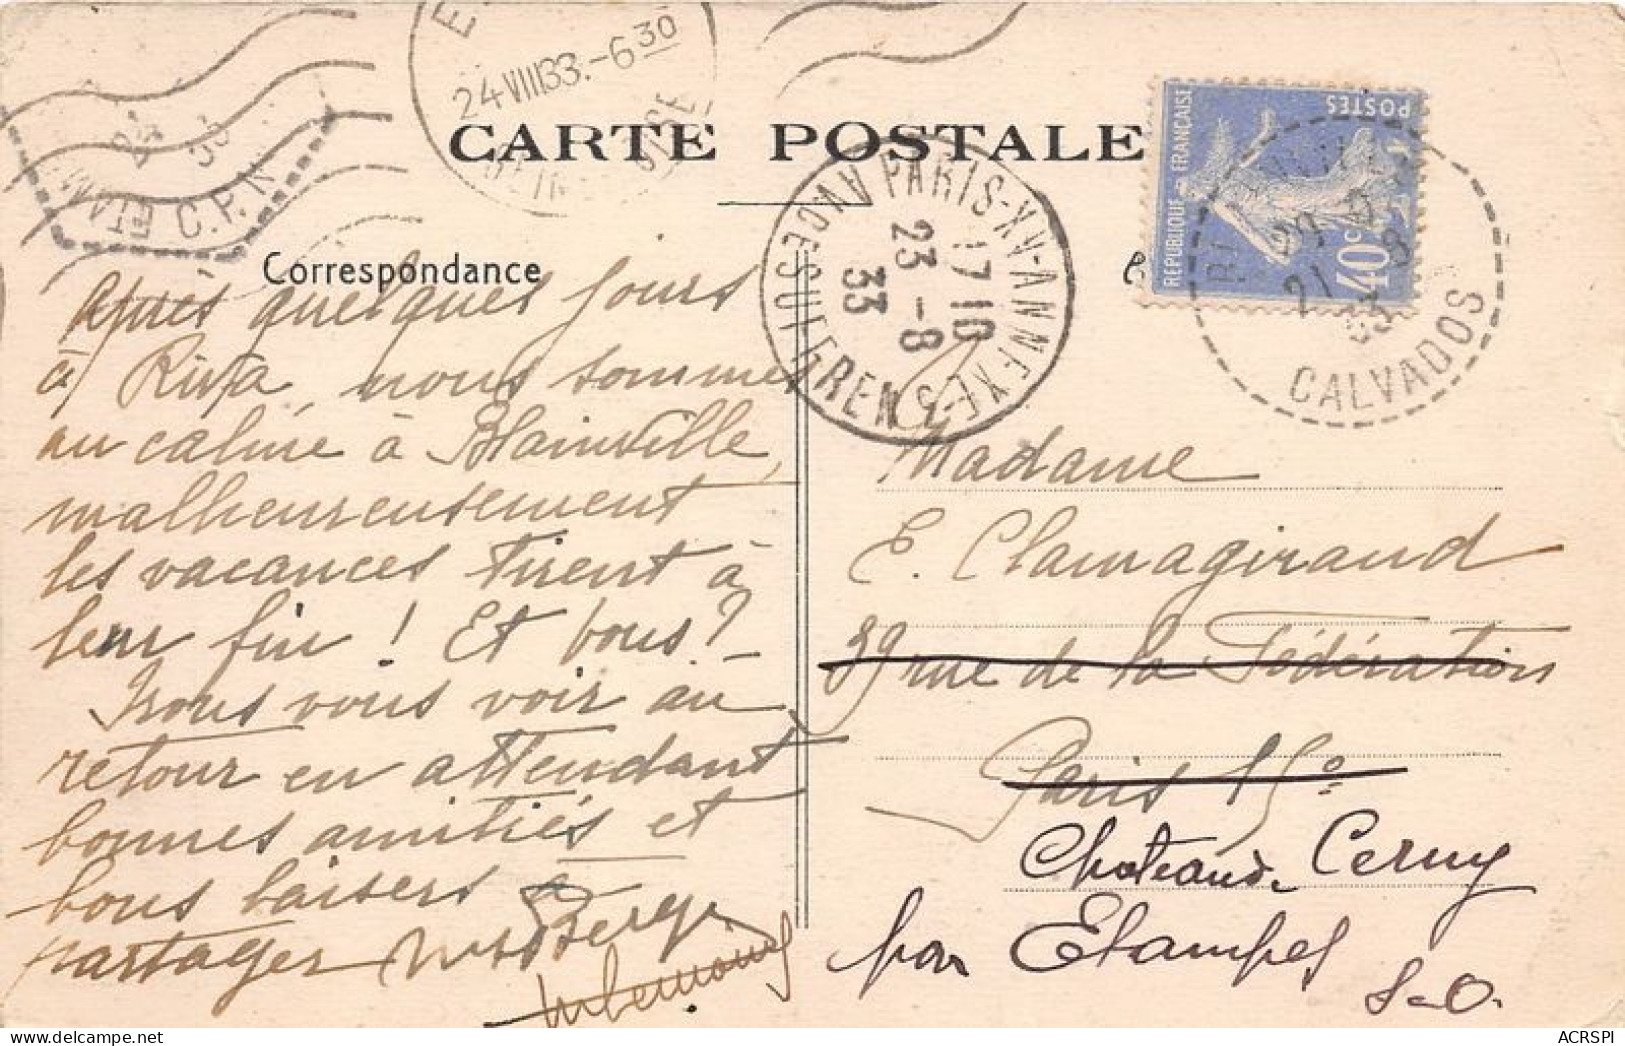 E
24 VIII 33.-6 30
OISE
CARTE POSTALE
ETAM
24
33
C.P.N
Correspondance
PARIS-XV-ANNEXE-S
AV.CESUFFREN
17 10
23-8
33
REPUBLIQUE - FRANÇAISE
POSTES
40c
21
CALVADOS
Après quelques jours
à Riva, nous sommes
au calme à Blainville,
malheureusement
les vacances tirent à
leur fin ! Et vous ?
Irons vous voir au
retour en attendant
bonnes amitiés et
bons baisers à
partager
Madame
E. Clamagirand
39 rue de la Fédération
Paris 15e
Chateau de Cerny
par Etampes
S-O.
ACRSPI